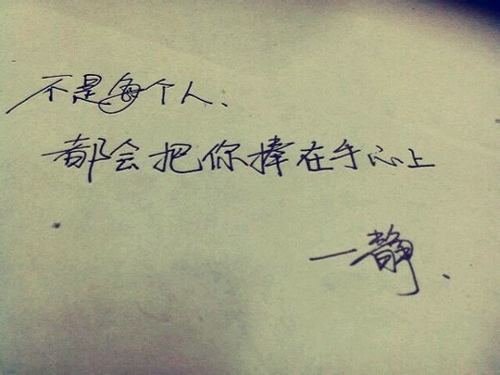 不是每个人、
都会把你捧在手心上
一静、